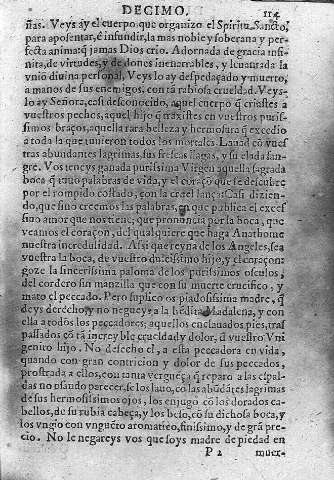 DECIMO. 114
ñas. Veys ay el cuerpo que organizo el Spiritu Sancto,
para aposentar, é infundir, la mas noble y soberana y per-
fecta anima q̃ jamas Dios crio. Adornada de gracia infi-
nita, de virtudes, y de dones inenarrables, y leuantada la
vniõ diuina personal, Veys lo ay despedaçado y muerto,
a manos de sus enemigos, cõ tã rabiosa crueldad. Veys-
lo ay Señora, casi desconocido, aquel cuerpo q̃ criastes a
vuestros pechos, aquel hijo q̃ traxistes en vuestros purif-
simos braços, aquella rara belleza y hermosura q̃ excedio
a toda la que tuuieron todos los mortales. Lauad cõ vues-
tras abundantes lagrimas, sus frescas llagas, y su elada san-
gre. Vos teneys ganada purissima Virgen aquella sagrada
boca q̃ tantas palabras de vida, y el coraçõ que se descubre
por el rompido costado, con la cruel lança: Casi dizien-
do, que sino creemos las palabras, en que publica el exces
siuo amor que nos tiene, que pronuncia por la boca, que
veamos el coraçon, del qual quiere que haga Anathomc
nuestra incredulidad. Assi que reyna de los Angeles, sea
vuestra la boca, de vuestro dulcissimo hijo, y el coraçon:
goze la sincerissima paloma de los purissimos osculos,
del cordero sin manzilla que con su muerte crucifico, y
mato el peccado. Pero suplico os piadosissima madre, q̃
deys derecho, y no negueys a la bẽdita Madalena, y con
ella a todos los peccadores; aquellos enclauados pies, tras
passados cõ tã increyble crueldad y dolor, d̃ vuestro Vni
genito hijo. No desecho el, a essa peccadora en vida,
quando con gran contricion y dolor de sus peccados,
prostrada a ellos, con tanta verguẽça q̃ reparo a las espal-
das no osando parecer, se los lauo, cõ las abũdãtes lagrimas
de sus hermosissimos ojos, los enjugó cõ los dorados ca-
bellos, de su rubia cabeça, y los beso, cõ su dichosa boca, y
los vngio con vnguẽto aromatico, finissimo, y de grã pre-
cio. No le negareys vos que soys madre de piedad en
P 2 muer-